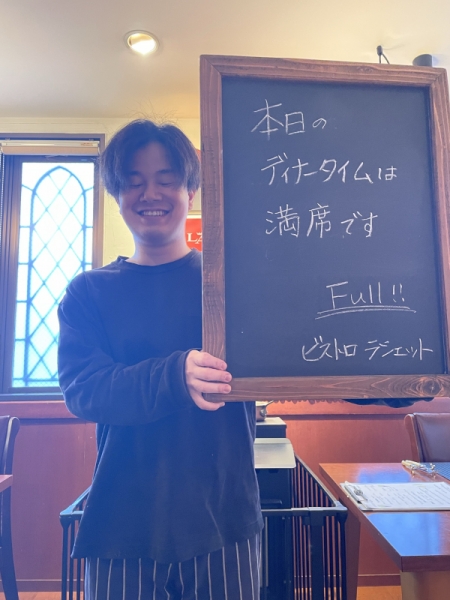 本日の
ディナータイムは
満席です
Full!!
ビストロ ラシェット